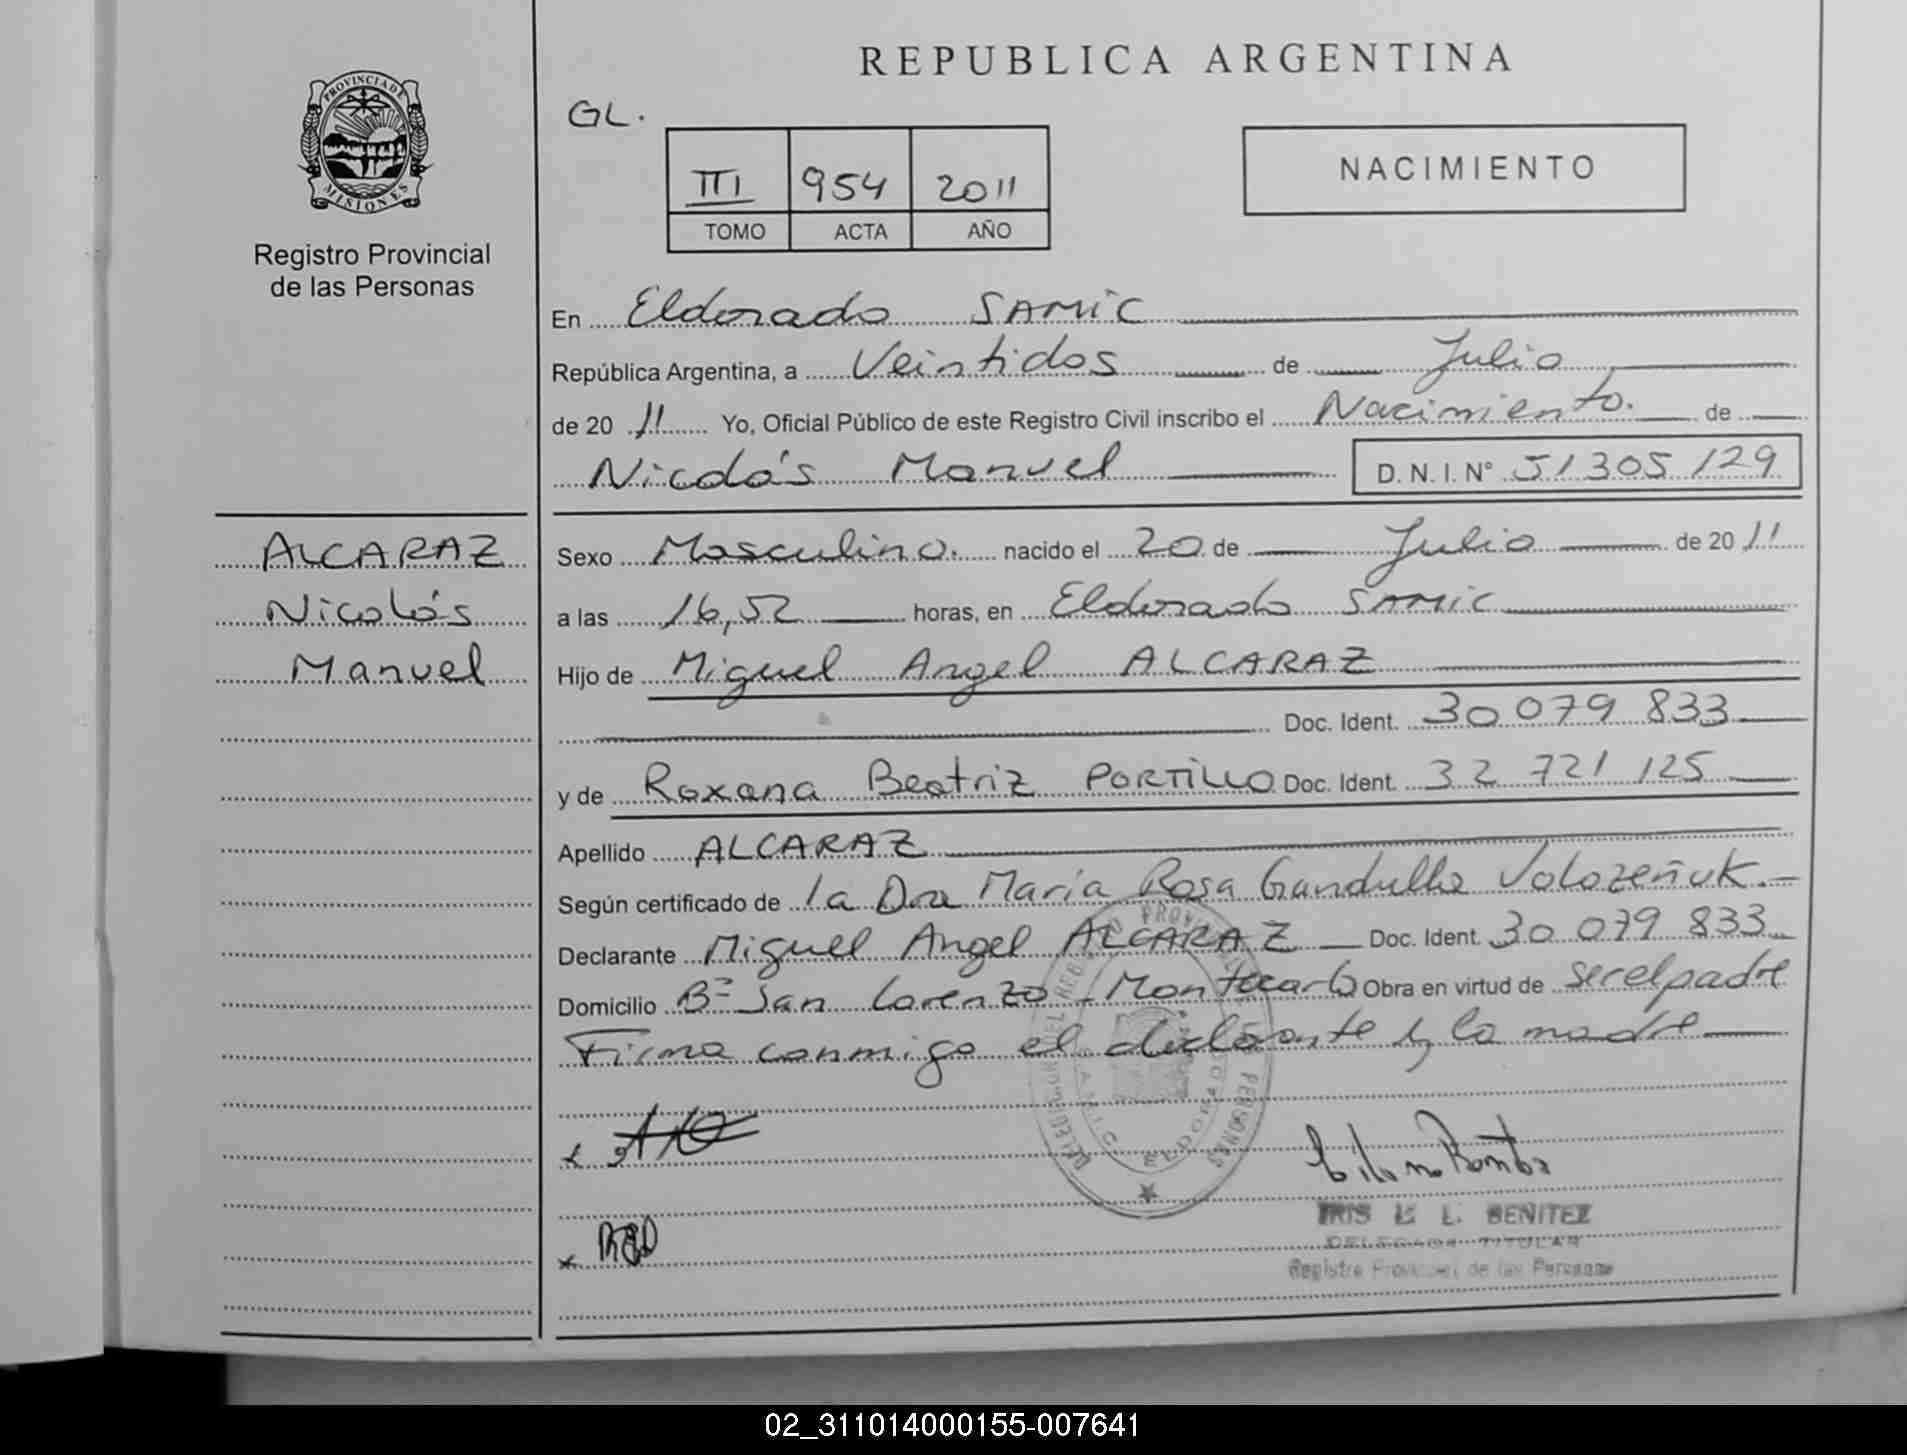 REPUBLICA ARGENTINA
PROVINCIA DE
MISIONES
Registro Provincial
de las Personas
GL.
III 954 2011
TOMO ACTA AÑO
NACIMIENTO
En Eldorado SAMIC
República Argentina, a Veintidos de Julio
de 20 11 Yo, Oficial Público de este Registro Civil inscribo el Nacimiento. de
Nicolás Manuel D.N.I. N° 51305129
ALCARAZ
Nicolás
Manuel
Sexo Masculino. nacido el 20 de Julio de 20 11
a las 16,52 horas, en Eldorado SAMIC
Hijo de Miguel Angel ALCARAZ
Doc. Ident. 30 079 833
y de Roxana Beatriz PORTILLO Doc. Ident. 32 721 125
Apellido ALCARAZ
Según certificado de la Dra Maria Rosa Gandulla Volozeñuk.-
Declarante Miguel Angel ALCARAZ Doc. Ident. 30 079 833
Domicilio B° San Lorenzo - Montecarlo Obra en virtud de ser el padre
Firma conmigo el declarante y la madre
IRIS L. BENITEZ
DELEGADA TITULAR
Registro Provincial de las Personas
02_311014000155-007641